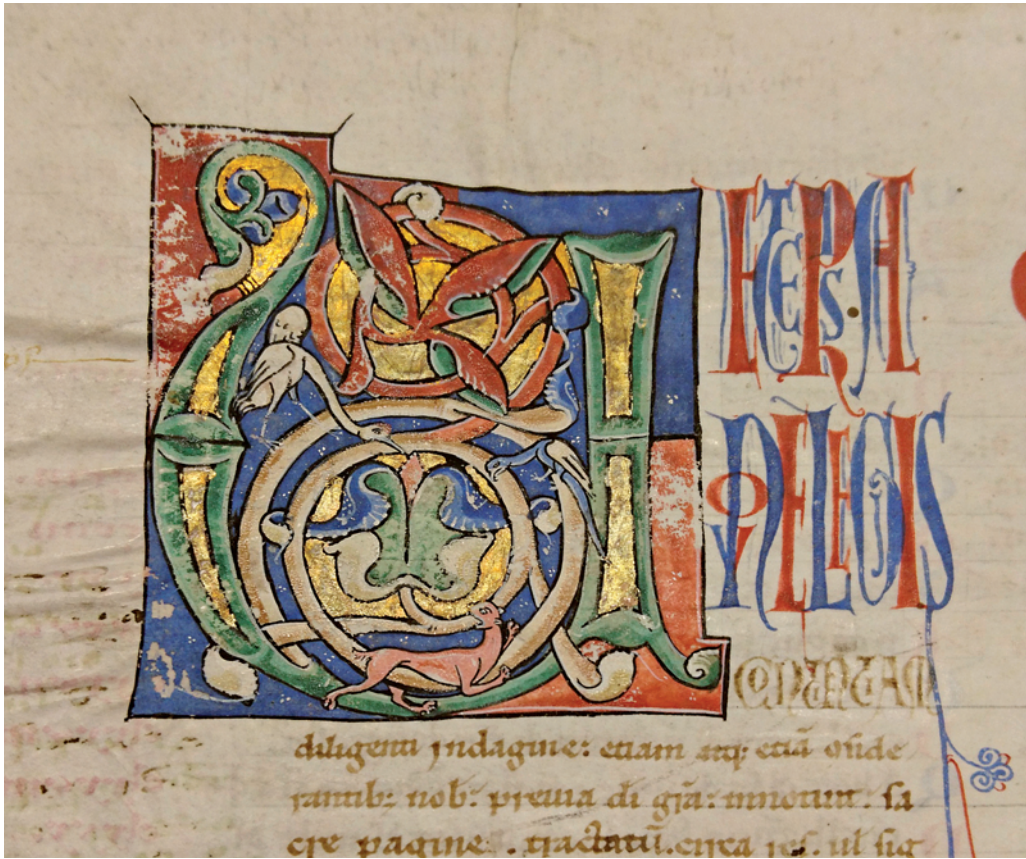 VETERIS A
NOVE LEGIS
CONTINĒTIAM
diligenti jndagine: etiam atq; etiā ɔside
rantib: nob: previa di gr̄a: innotuit: sa
cre pagine . tractatū. circa res. ul sig